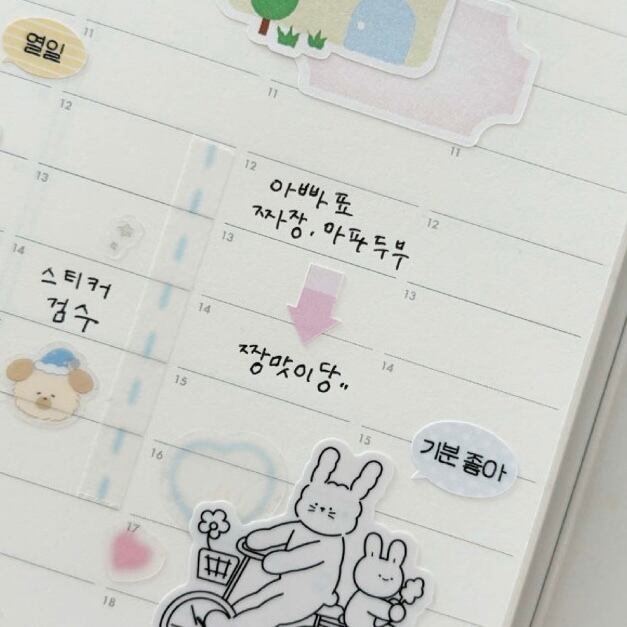 열일
11
11
11
12
12
12
아빠표
짜장, 마파두부
13
13
13
14
스티커
검수
14
짱맛이당..
14
15
15
기분 좋아
16
17
18